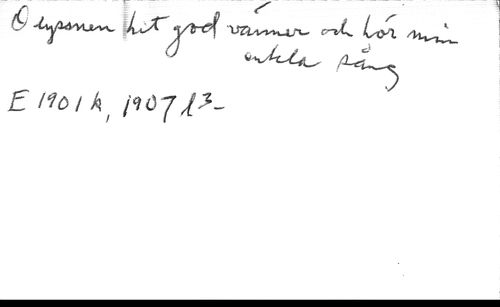 O lyssnen hit god vänner och hör min
enkla sång
E 1901 k, 1907 l3-